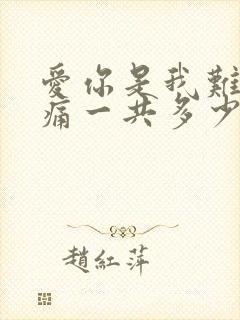 愛你是我難
痛一共多少
趙紅萍